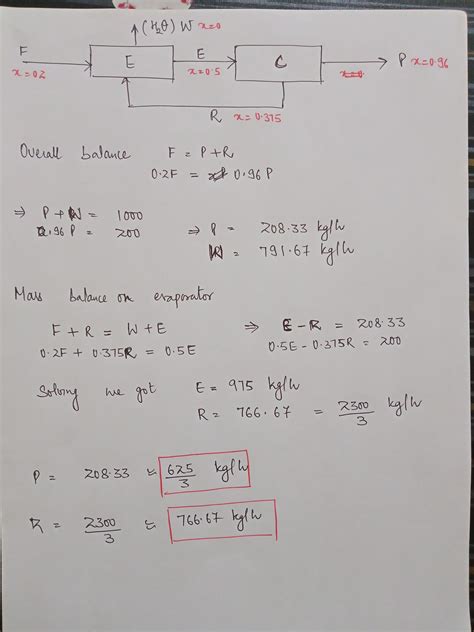 (H₂O) W x=0
F E E C P x=0.96
x=0.2 x=0.5
R x=0.375
Overall balance F = P+R
0.2F = 0.96P
⇒ P + W = 1000
0.96P = 200 ⇒ P = 208.33 kg/h
W = 791.67 kg/h
Mass balance on evaporator
F + R = W + E ⇒ E - R = 208.33
0.2F + 0.375R = 0.5E 0.5E - 0.375R = 200
Solving we got E = 975 kg/h
R = 766.67 = 2300/3 kg/h
P = 208.33 ≈ 625/3 kg/h
R = 2300/3 ≈ 766.67 kg/h